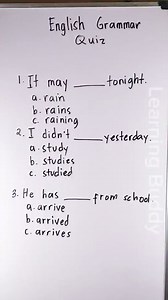 English Grammar
Quiz
1. It may ____ tonight.
a. rain
b. rains
c. raining
2. I didn't ____ yesterday.
a. study
b. studies
c. studied
3. He has ____ from school.
a. arrive
b. arrived
c. arrives
Learning Buddy